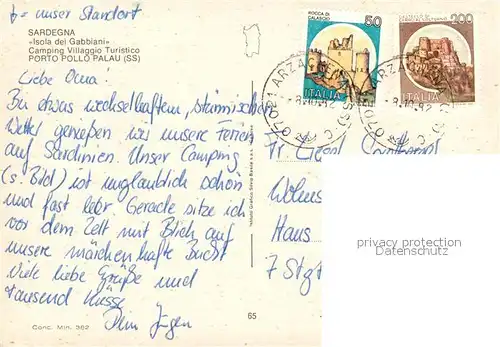 ↓ = unser Standort
SARDEGNA
«Isola dei Gabbiani»
Camping Villaggio Turistico
PORTO POLLO PALAU (SS)
ROCCA DI
CALASCIO
50
ITALIA
200
ITALIA
07021 ARZA
8.10.82
Liebe Oma!
Bei etwas wechselhaftem, stürmischen
Wetter genießen wir unsere Ferien
auf Sardinien. Unser Camping
(s. Bild) ist unglaublich schön
und fast leer. Gerade sitze ich
vor dem Zelt mit Blick auf
unsere märchenhafte Bucht
Viele liebe Grüße und
tausend Küsse
Dein Jürgen
Haus
7 Stgt
privacy protection
Datenschutz
Conc. Min. 362
65